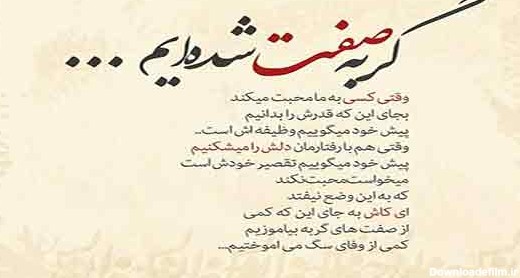 گربه صفت شده‌ایم ...
وقتی کسی به ما محبت میکند
بجای این که قدرش را بدانیم
پیش خود میگوییم وظیفه اش است..
وقتی هم با رفتارمان دلش را میشکنیم
پیش خود میگوییم تقصیر خودش است
میخواست محبت نکند
که به این وضع نیفتد
ای کاش به جای این که کمی
از صفت های گربه بیاموزیم
کمی از وفای سگ می اموختیم...
Downloadefilm.ir